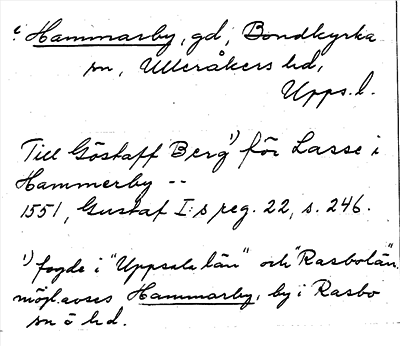 c Hammarby, gd, Bondkyrka
sn, Ulleråkers hd,
Upps. l.
Till Göstaff Berg¹) för Lasse i
Hammerby --
1551, Gustaf I:s reg. 22, s. 246.
¹) fogde i "Uppsala län" och "Rasbolän".
möjl. avses Hammarby, by i Rasbo
sn o hd.